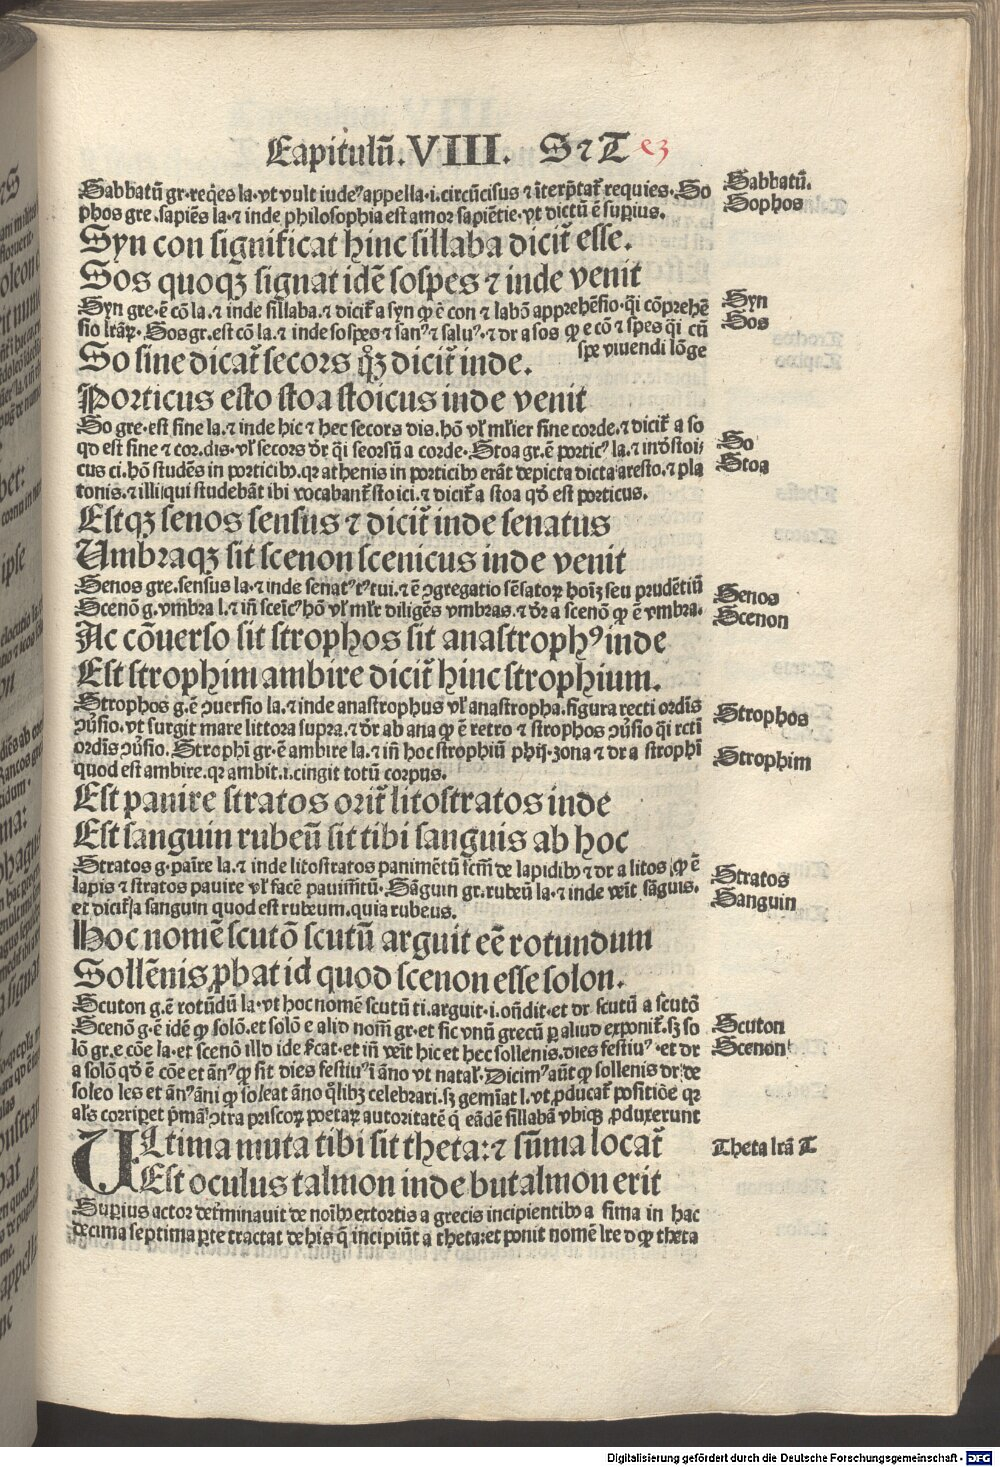 Capitulū. VIII. S ⁊ T
Sabbatū gr. reqẽs la. vt vult iudeꝰ appella .i. circūcisus ⁊ īterp̄tat᷑ requies. So
Sabbatū.
phos gre. sapiēs la. ⁊ inde philosophia est amor sapiētie. vt dictū ē suꝑius.
Sophos
Syn con significat hinc sillaba dicit᷑ esse.
Sos quoqꝫ signat idē sospes ⁊ inde venit
Syn gre. ē cō la. ⁊ inde sillaba. ⁊ dicit᷑ a syn ꝙ ē con ⁊ labō apprehēsio. q̇si cōprehē
Syn
sio lrāꝝ. Sos gr. est cō la. ⁊ inde sospes ⁊ sanꝰ ⁊ saluꝰ. ⁊ dr a sos ꝙ e cō ⁊ spes q̇si cū
Sos
spe viuendi lōge
So sine dicat᷑ secors qꝫ dicit᷑ inde.
Porticus esto stoa stoicus inde venit
So gre. est sine la. ⁊ inde hic ⁊ hec secors dis. hō vl̓ ml̓ier sine corde. ⁊ dicit᷑ a so
So
qd̓ est sine ⁊ cor. dis. vl̓ secors dr̄ q̇si seorsū a corde. Stoa gr. ē porticꝰ la. ⁊ in̄ stoi
Stoa
cus ci. hō studēs in porticibꝰ. qr athenis in porticibꝰ erāt depicta dicta aresto. ⁊ pla
tonis. ⁊ illi qui studebāt ibi vocabant᷑ stoici. ⁊ dicit᷑ a stoa qd̓ est porticus.
Estqꝫ senos sensus ⁊ dicit᷑ inde senatus
Umbraqꝫ sit scenon scenicus inde venit
Senos gre. sensus la. ⁊ inde senatꝰ tꝰ tui. ⁊ ē ꝯgregatio sēsatoꝝ hoīꝫ seu prudētiū
Senos
Scenō g. vmbra l. ⁊ in̄ sceīcꝰ hō vl̓ ml̓r diligēs vmbras. ⁊ dr̄ a scenō ꝙ ē vmbra.
Scenon
Ac cōuerso sit strophos sit anastrophꝰ inde
Est strophim ambire dicit᷑ hinc strophium.
Strophos g. ē ꝯuersio la. ⁊ inde anastrophus vl̓ anastropha. figura recti ordīs
Strophos
ꝯu̓sio. vt surgit mare littora supra. ⁊ dr̄ ab ana ꝙ ē retro ⁊ strophos ꝯu̓sio q̇si rcti
ordīs ꝯu̓sio. Strophī gr. ē ambire la. ⁊ in̄ hoc strophiū phij. zona ⁊ dr a strophī
Strophim
quod est ambire. qr ambit .i. cingit totū corpus.
Est pauire stratos orit᷑ litostratos inde
Est sanguin rubeū sit tibi sanguis ab hoc
Stratos g. pauīre la. ⁊ inde litostratos pauimētū fcm̄ de lapidibꝰ ⁊ dr a litos ꝙ ē
Stratos
lapis ⁊ stratos pauire vl̓ facē pauimētū. Sāguin gr. rubeū la. ⁊ inde veīt sāguis.
Sanguin
et dicit᷑ a sanguin quod est rubeum. quia rubeus.
Hoc nomē scutō scutū arguit eē rotundum
Sollēnis ꝓbat id quod scenon esse solon.
Scuton g. ē rotūdū la. vt hoc nomē scutū ti. arguit .i. oñdit. et dr scutū a scutō
Scuton
Scenō g. ē idē ꝙ solō. et solō e alid nom̄ gr. et sic vnū grecū ꝑ aliud exponit᷑. sꝫ so
Scenon
lō gr. e cōe la. et scenō illd ide st̄cat. et in̄ veīt hic et hec sollenis. dies festiuꝰ. et dr
a solō qd̓ ē cōe et ānꝰ ꝙ sit dies festiuꝰ ī āno vt natal̓. Dicimꝰ aūt ꝙ sollenis dr de
soleo les et ānꝰ āni ꝙ soleat āno q̄libꝫ celebrari. sꝫ gemīat l. vt ꝓducat᷑ positiōe qr
al̓s corripet pͥmāꝫ ꝯtra priscoꝝ poetaꝝ autoritatē q̇ eādē sillabā vbiqꝫ ꝓduxerunt
ULtima muta tibi sit theta: ⁊ sūma locat᷑
Theta lr̄a T
Est oculus talmon inde butalmon erit
Suꝑius actor det̓minauit de noībꝰ extortis a grecis incipientibꝰ a sima in hac
decima septima ꝑte tractat de his q̄ incipiūt a theta: et ponit nomē lre d ꝙ theta
Digitalisierung gefördert durch die Deutsche Forschungsgemeinschaft - DFG